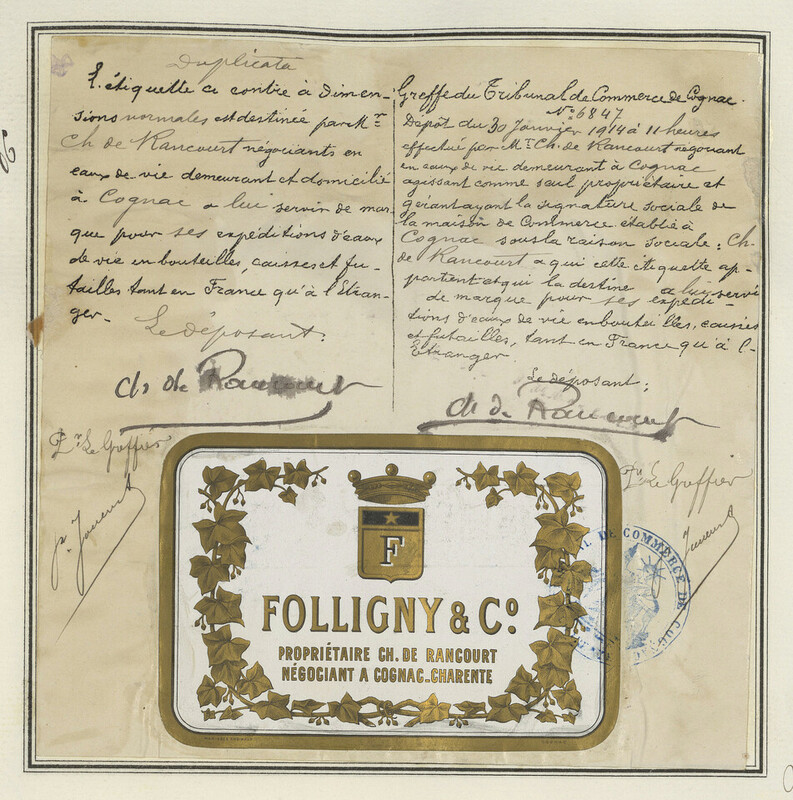 Duplicata
L'étiquette ci contre à dimen-
sions normales est destinée par Mr
Ch de Rancourt négociants en
eaux de vie demeurant et domicilié
à Cognac a lui servir de mar
que pour ses expéditions d'eaux
de vie en bouteilles, caisses et fu-
tailles tant en France qu'à l'Etran-
ger.
Le déposant:
Ch de Rancourt
Pr Le Greffier
Greffe du Tribunal de Commerce de Cognac.
No 6847
Dépôt du 30 Janvier 1914 à 11 heures
effectué par Mr Ch. de Rancourt négociant
en eaux de vie demeurant à Cognac
agissant comme seul propriétaire et
gérant ayant la signature sociale de
la maison de Commerce établie à
Cognac sous la raison sociale: Ch
de Rancourt a qui cette étiquette ap-
partient et qui la destine a lui servir
de marque pour ses expédi-
tions d'eaux de vie en bouteilles, caisses
et futailles, tant en France qu'à l'
Etranger.
Le déposant:
Ch de Rancourt
Pr Le Greffier
DE COMMERCE DE COG
F
FOLLIGNY & Co.
PROPRIÉTAIRE CH. DE RANCOURT
NÉGOCIANT A COGNAC-CHARENTE